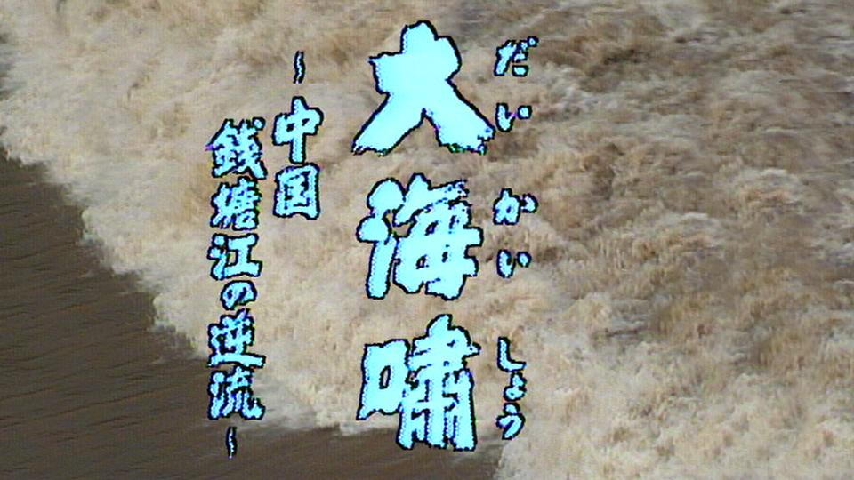 大海嘯
だいかいしょう
～中国
銭塘江の逆流～